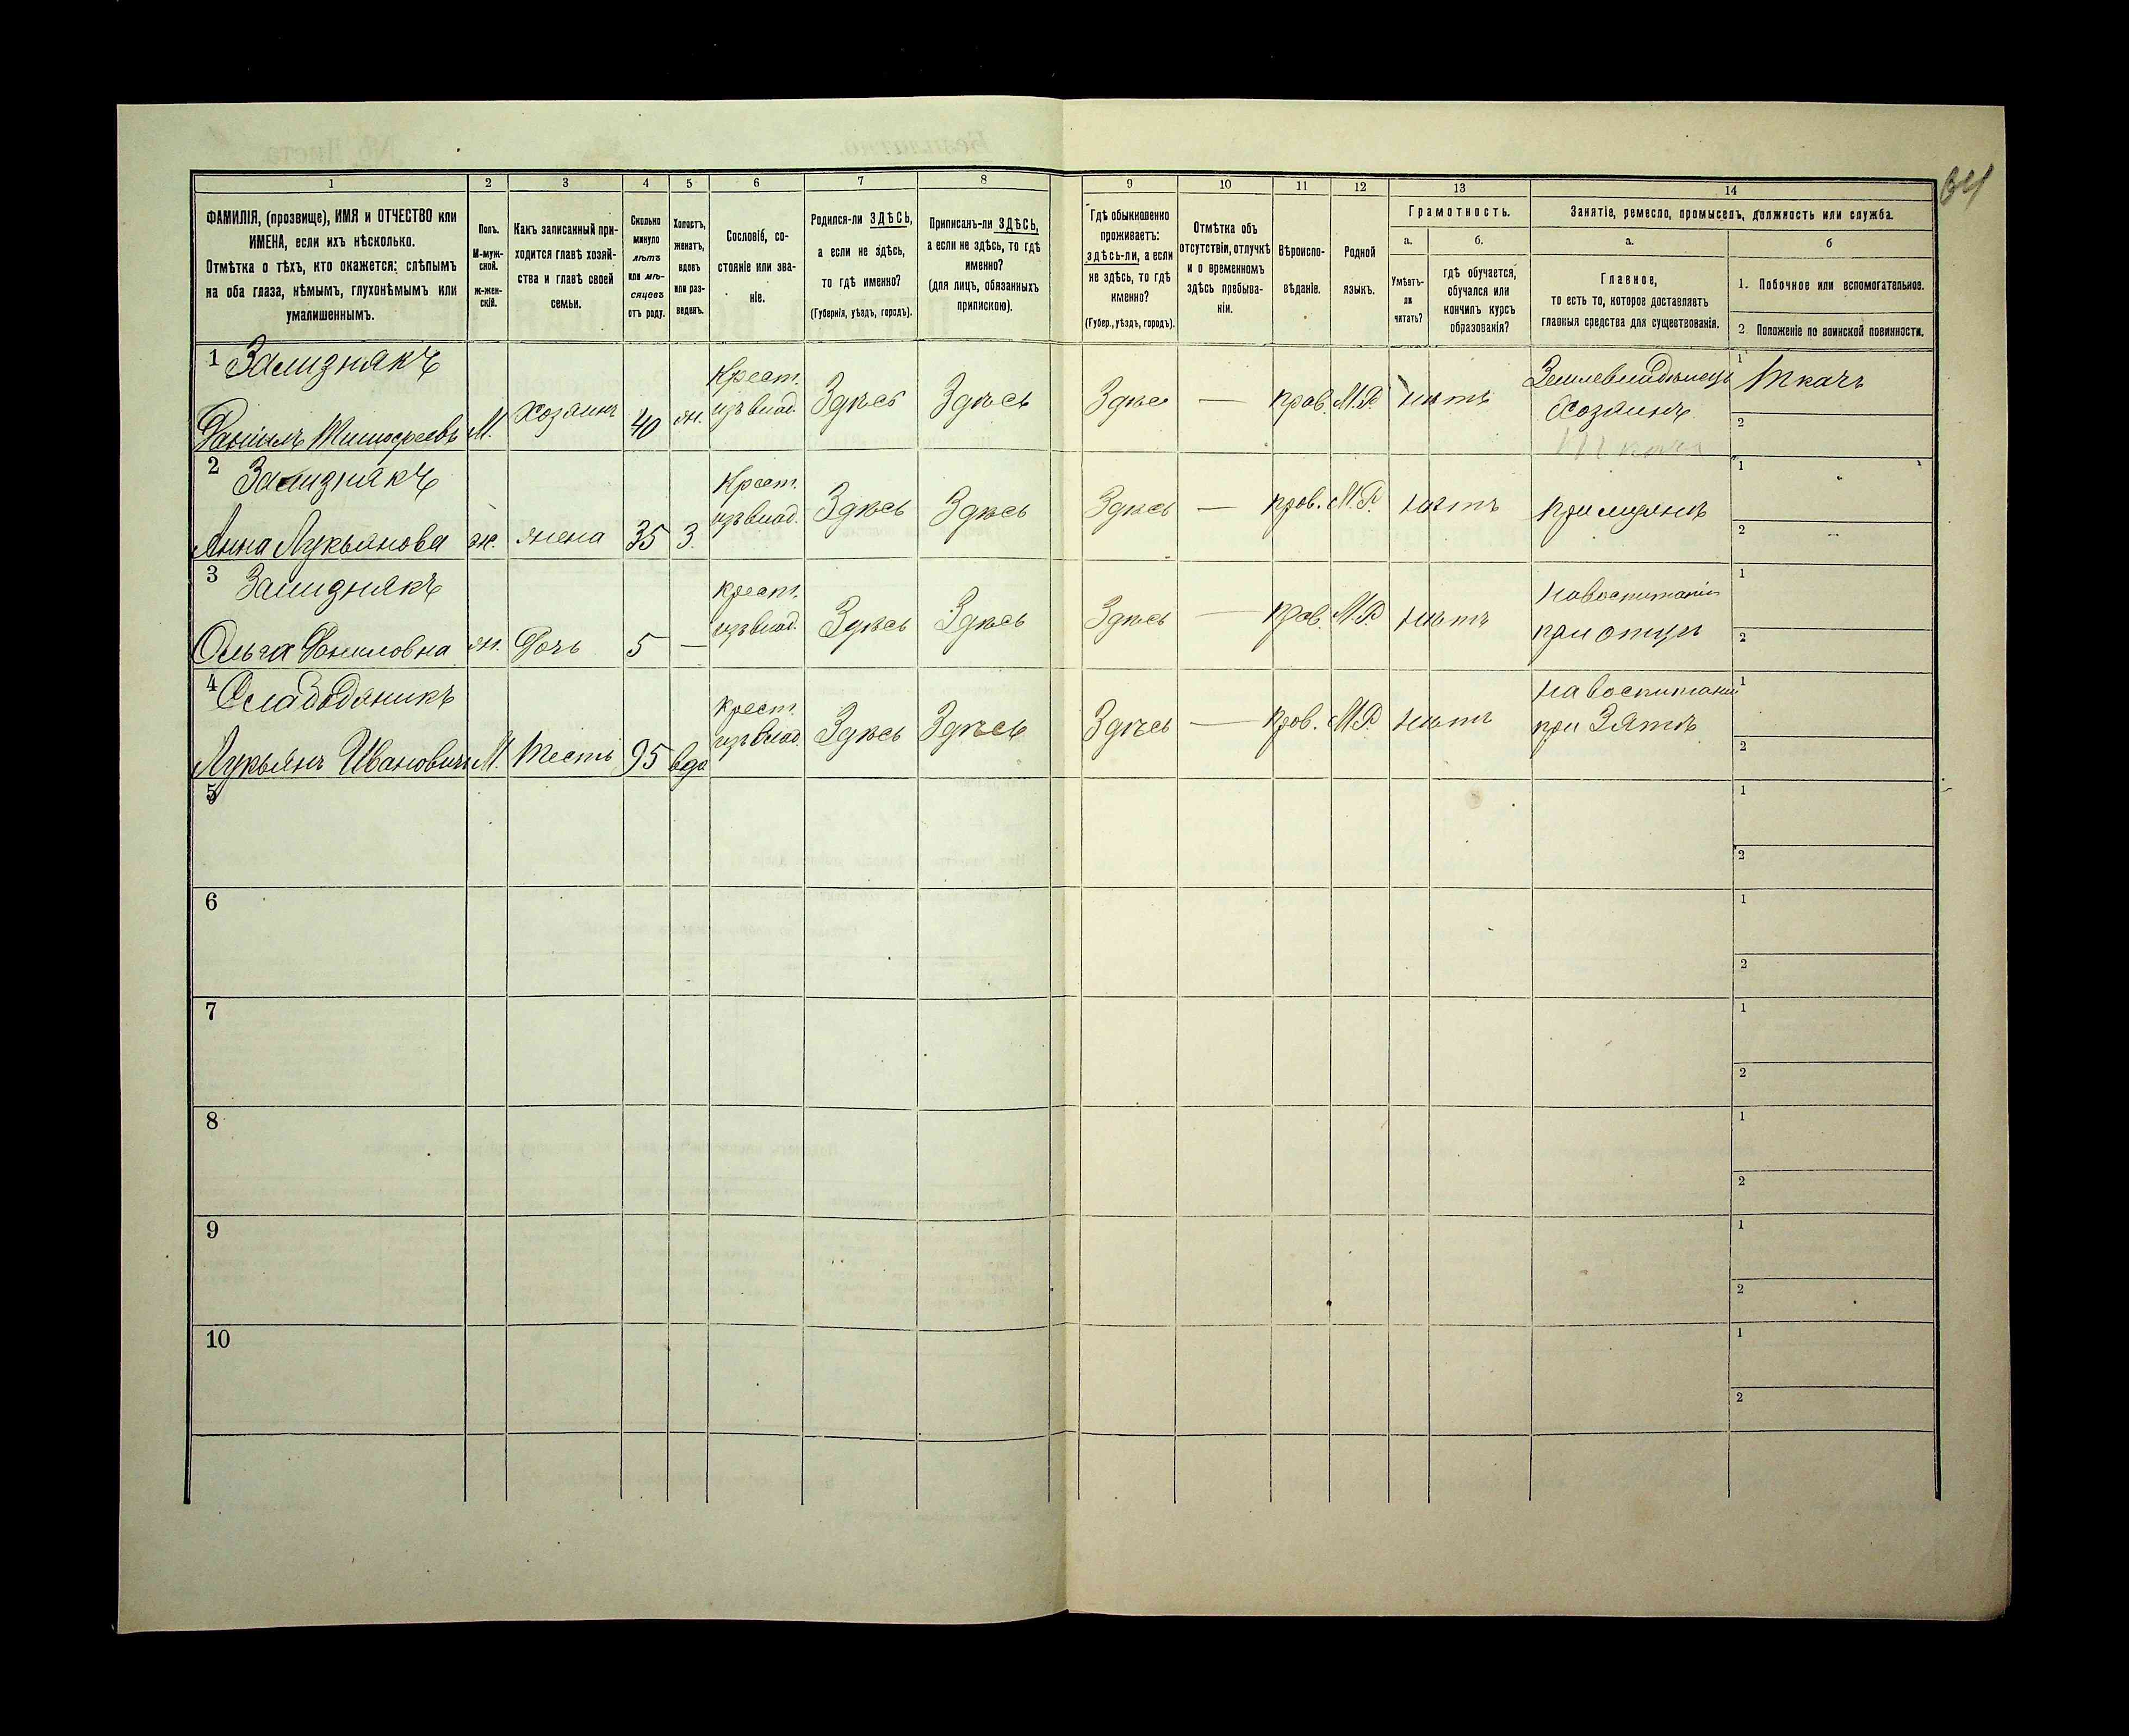 34
1 2 3 4 5 6 7 8 9 10 11 12 13 14
ФАМИЛІЯ, (прозвище), ИМЯ и ОТЧЕСТВО или
ИМЕНА, если ихъ нѣсколько.
Отмѣтка о тѣхъ, кто окажется: слѣпымъ
на оба глаза, нѣмымъ, глухонѣмымъ или
умалишеннымъ.
Полъ.
М-муж-
ской.
ж-жен-
скій.
Какъ записанный при-
ходится главѣ хозяй-
ства и главѣ своей
семьи.
Сколько
минуло
лѣтъ
или мѣ-
сяцевъ
отъ роду.
Холостъ,
женатъ,
вдовъ
или раз-
веденъ.
Сословіе, со-
стояніе или зва-
ніе.
Родился-ли ЗДѢСЬ,
а если не здѣсь,
то гдѣ именно?
(Губернія, уѣздъ, городъ).
Приписанъ-ли ЗДѢСЬ,
а если не здѣсь, то гдѣ
именно?
(для лицъ, обязанныхъ
припискою).
Гдѣ обыкновенно
проживаетъ:
здѣсь-ли, а если
не здѣсь, то гдѣ
именно?
(Губер., уѣздъ, городъ).
Отмѣтка объ
отсутствіи, отлучкѣ
и о временномъ
здѣсь пребыва-
ніи.
Вѣроиспо-
вѣданіе.
Родной
языкъ.
Грамотность.
а.
Умѣетъ-
ли
читать?
б.
гдѣ обучается,
обучался или
кончилъ курсъ
образованія?
Занятіе, ремесло, промыселъ, должность или служба.
а.
Главное,
то есть то, которое доставляетъ
главныя средства для существованія.
б
1. Побочное или вспомогательное.
2. Положеніе по воинской повинности.
1 Зализнякъ
Данiилъ Тимофеевъ М. Хозяинъ 40 ж. Крест. изъ влад. Здѣсь Здѣсь Здѣсь — прав. М.Р. нѣтъ Землевладѣлецъ Хозяинъ 1 Ткачъ
Ткачъ 2
2 Зализнякъ
Анна Лукьянова ж. жена 35 З. Крест. изъ влад. Здѣсь Здѣсь Здѣсь — прав. М.Р. нѣтъ при мужѣ 1
2
3 Зализнякъ
Ольга Даниловна ж. Дочь 5 — крест. изъ влад. Здѣсь Здѣсь Здѣсь — прав. М.Р. нѣтъ на воспитаніи при отцѣ 1
2
4 Слабодяникъ
Лукьянъ Ивановичъ М. Тесть 95 вдо крест. изъ влад. Здѣсь Здѣсь Здѣсь — прав. М.Р. нѣтъ на воспитаніи при Зятѣ 1
2
5 1
2
6 1
2
7 1
2
8 1
2
9 1
2
10 1
2